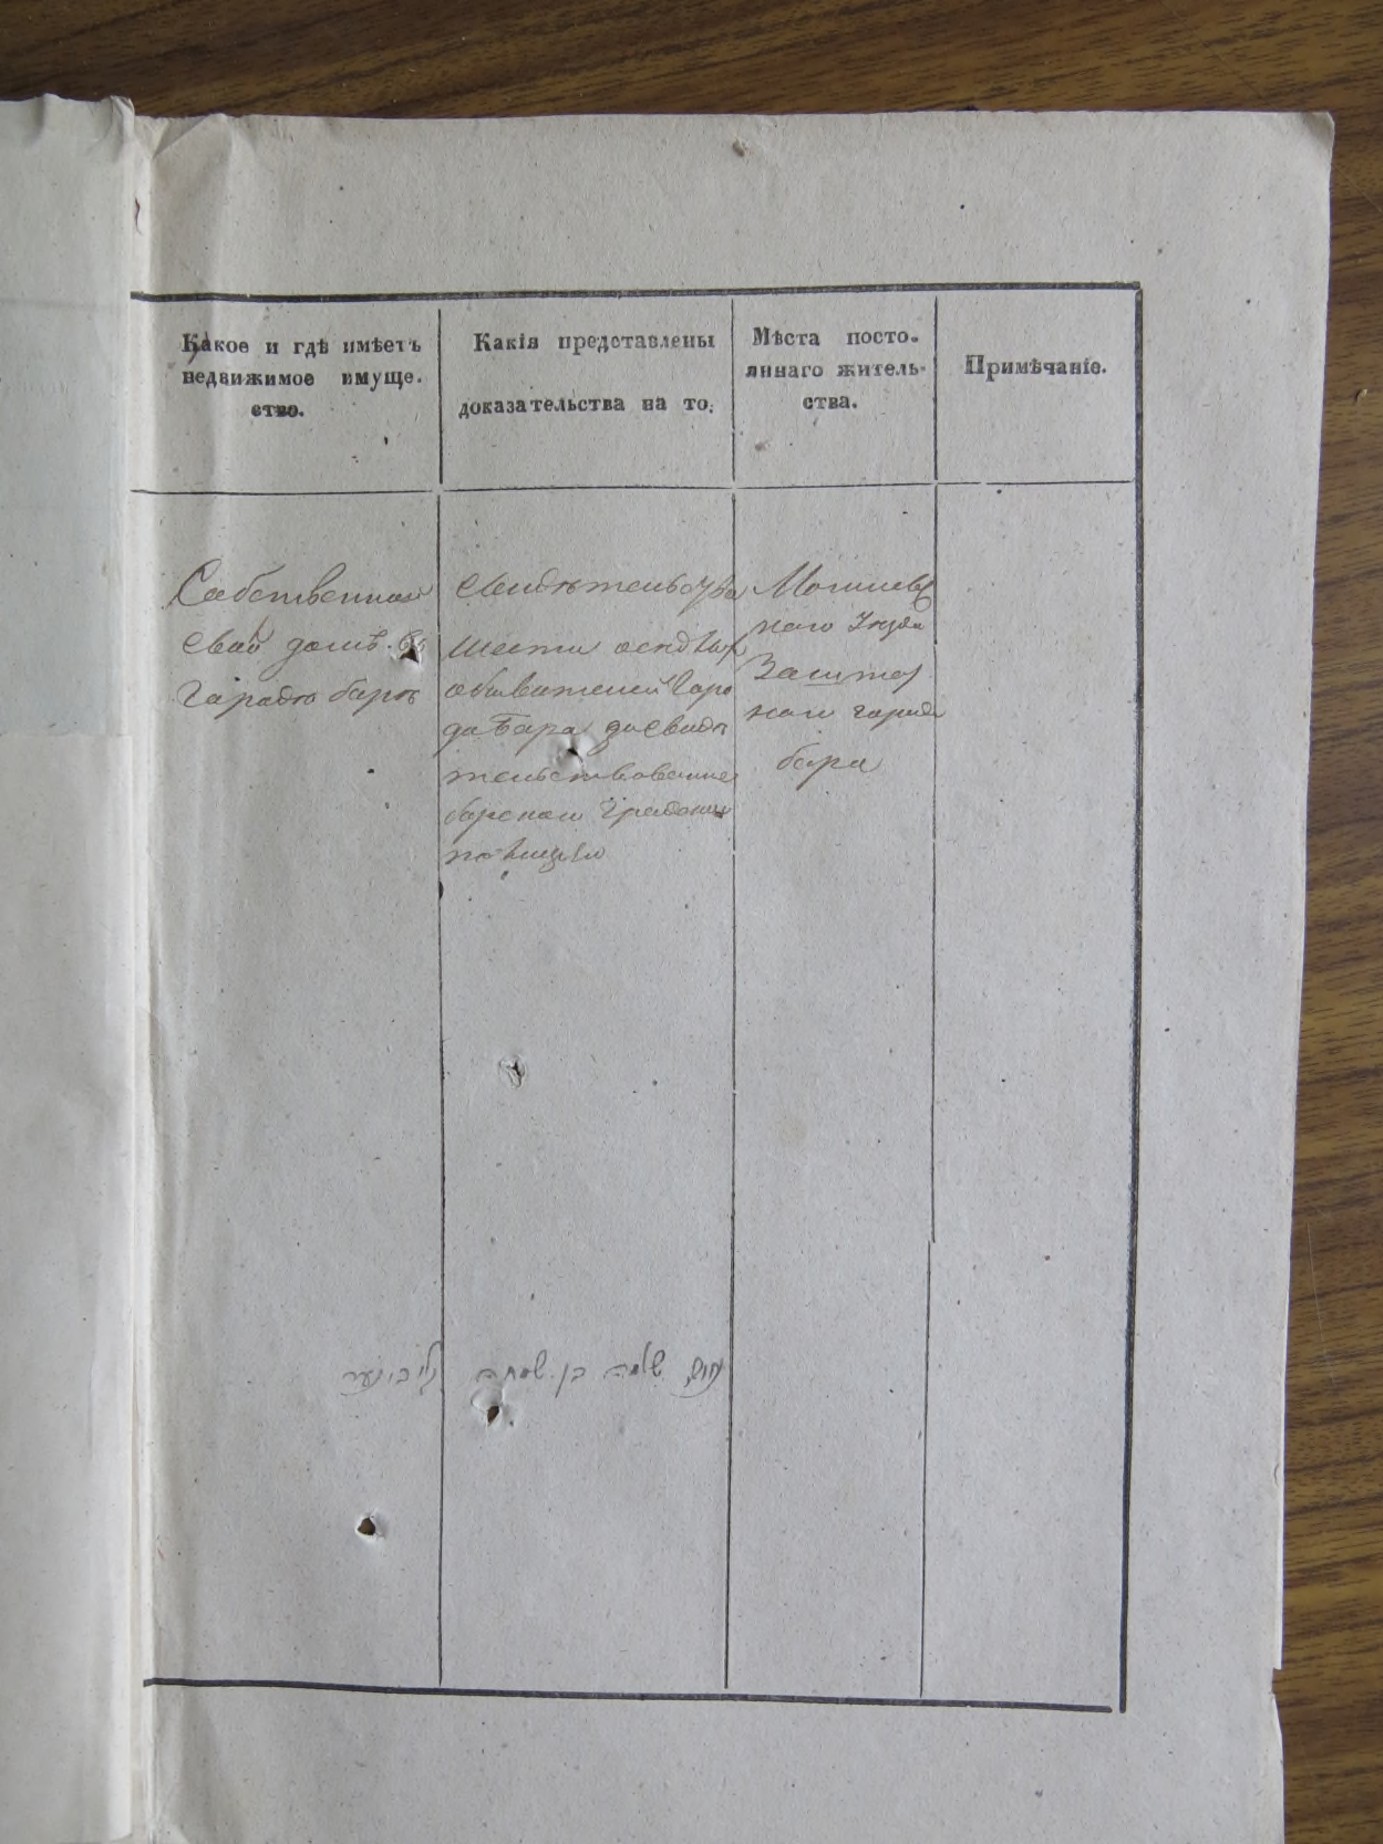 Какое и гдѣ имѣетъ
недвижимое имуще.
ство.
Какія представлены
доказательства на то.
Мѣста посто.
яннаго житель-
ства.
Примѣчаніе.
Собственной
свой домъ. Въ
Городѣ барѣ
свидѣтельства
шести оседлых
обывателей Горо
да Бара
тельствование
барской Градской
полицѣю
наго Уезда
Заштат
наго города
бара
שלמה בן שמחה